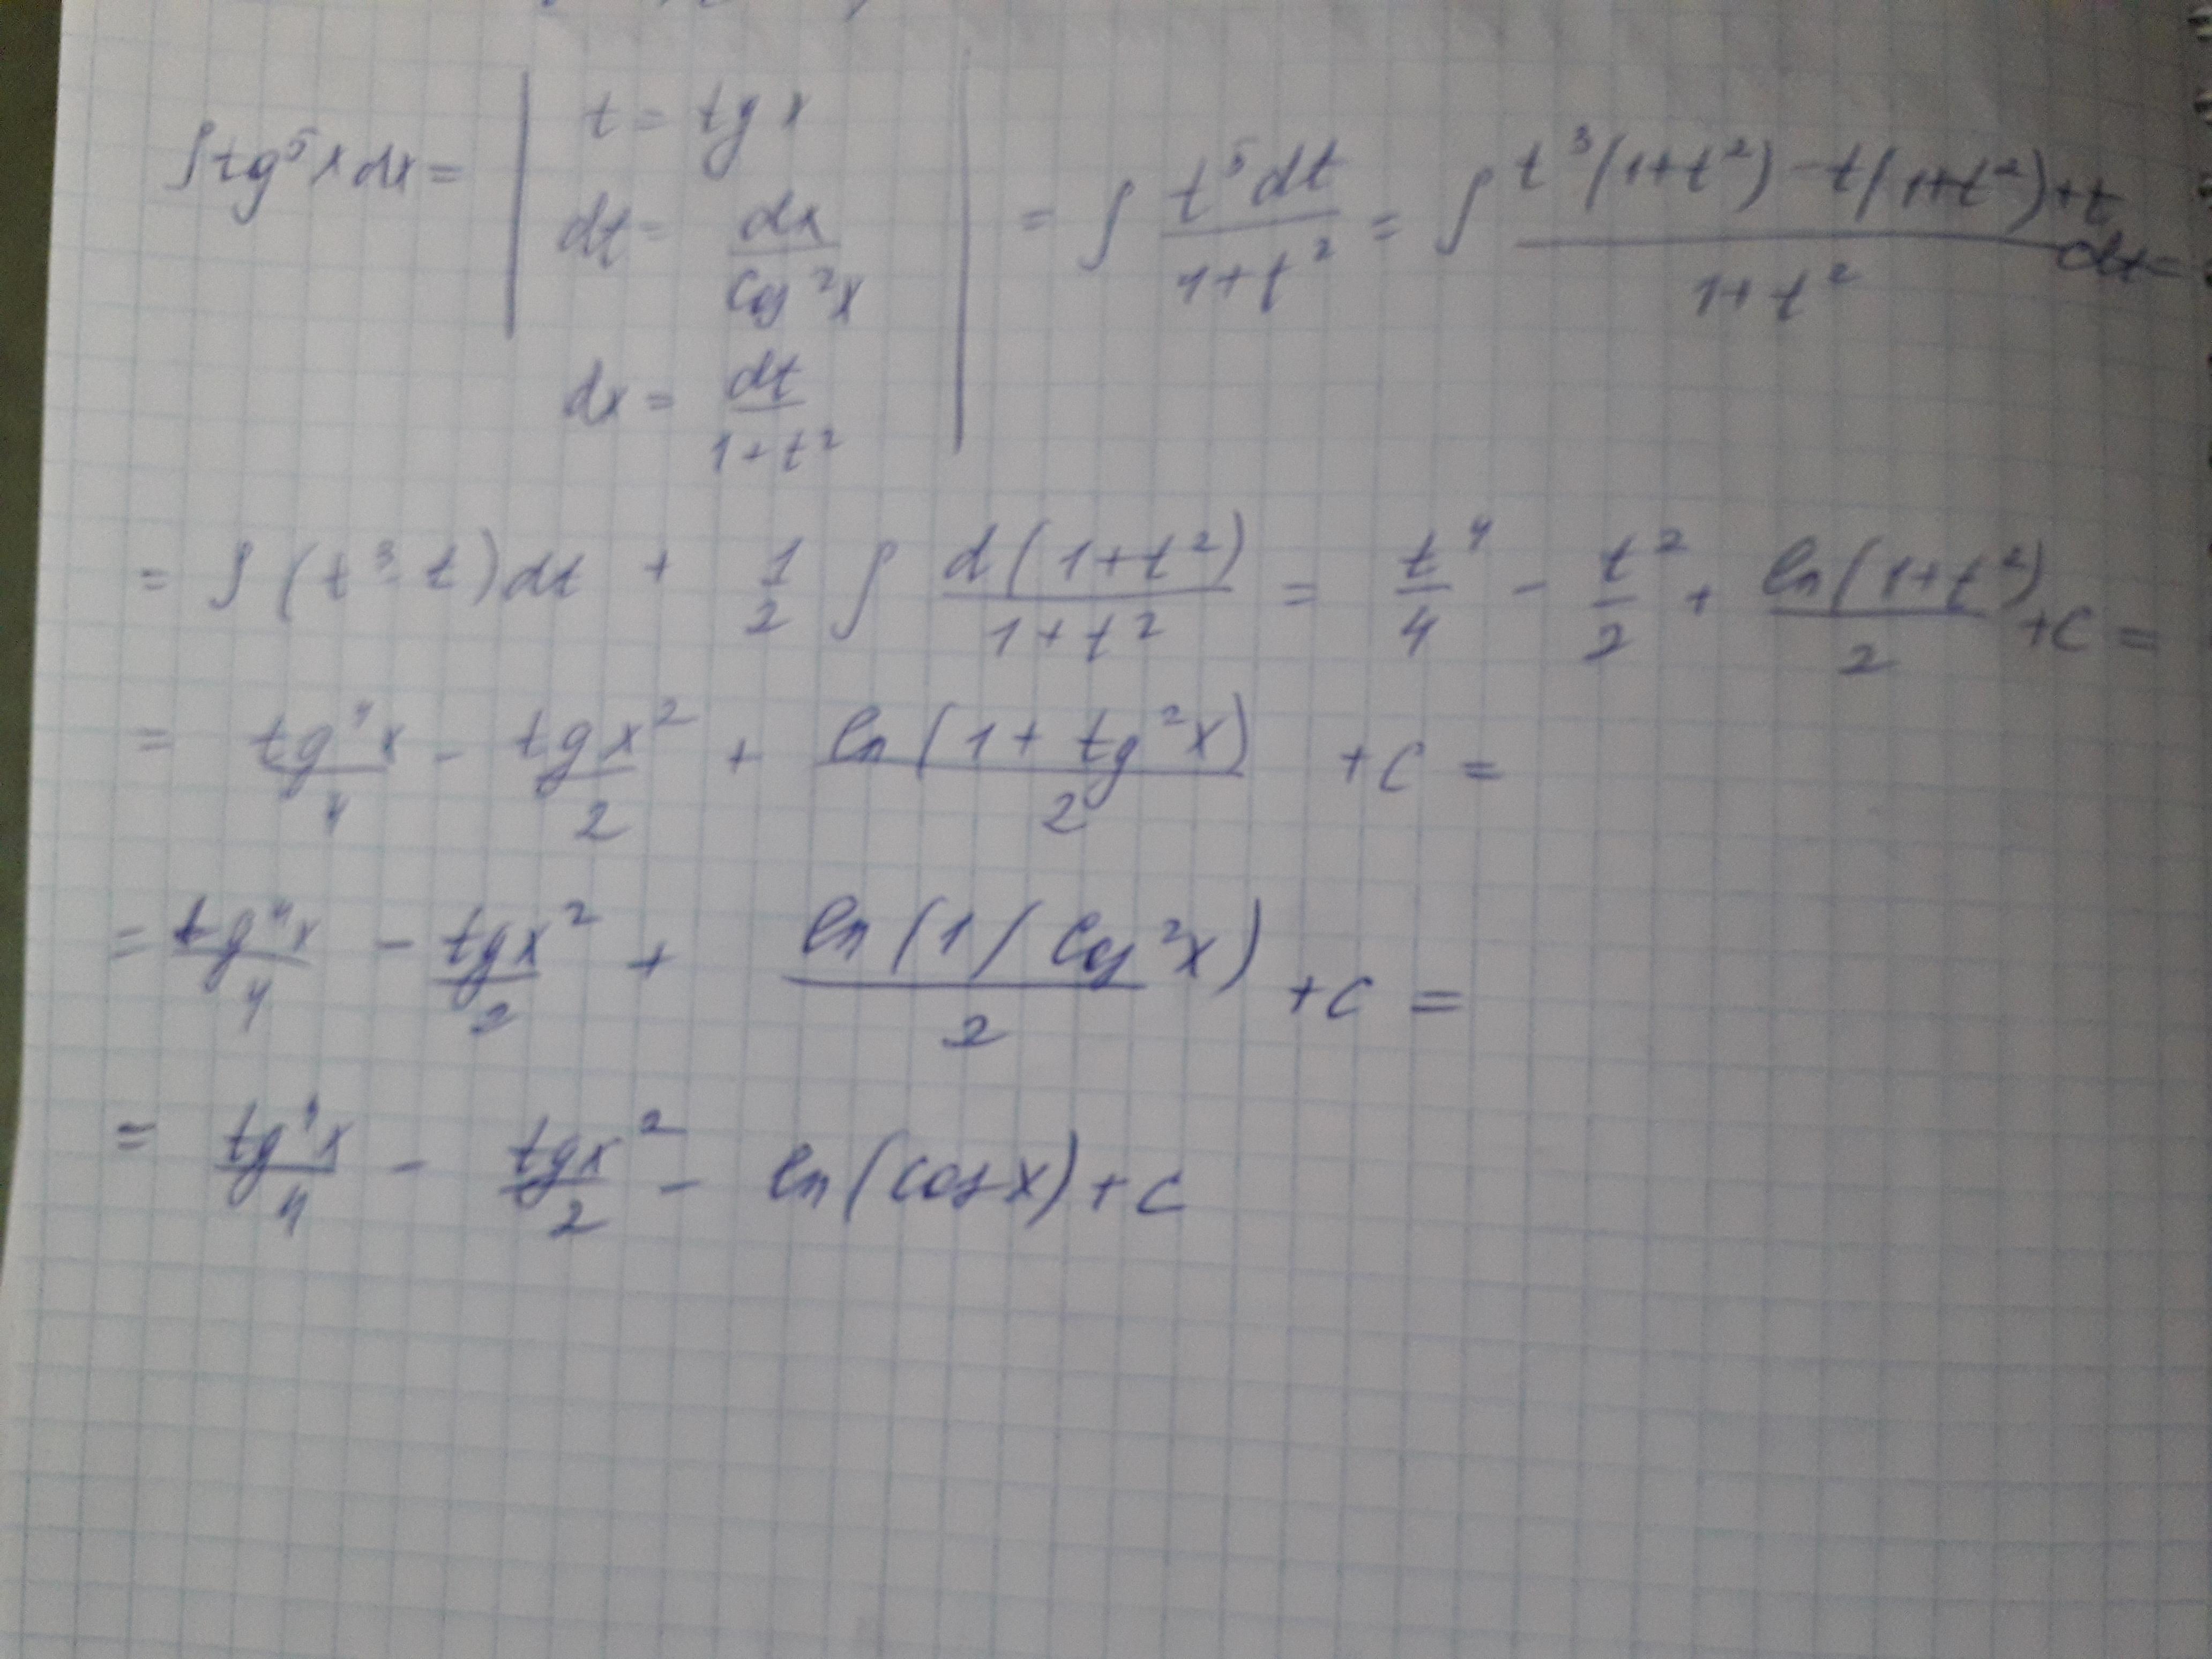 ∫tg⁵x dx = | t = tg x; dt = dx/cos²x; dx = dt/(1+t²) | = ∫ t⁵dt/(1+t²) = ∫ (t³(1+t²) - t(1+t²) + t)/(1+t²) dt =
= ∫(t³ - t)dt + 1/2 ∫ d(1+t²)/(1+t²) = t⁴/4 - t²/2 + ln(1+t²)/2 + C =
= tg⁴x/4 - tgx²/2 + ln(1+tg²x)/2 + C =
= tg⁴x/4 - tgx²/2 + ln(1/cos²x)/2 + C =
= tg⁴x/4 - tgx²/2 - ln(cosx) + C